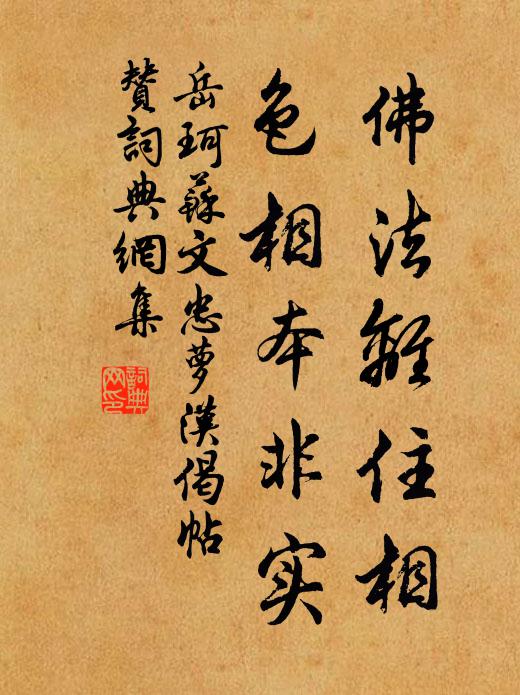 佛法離住相
色相本非实
岳珂蘇文忠夢漢偈帖
贊詞典網集
詞典網印